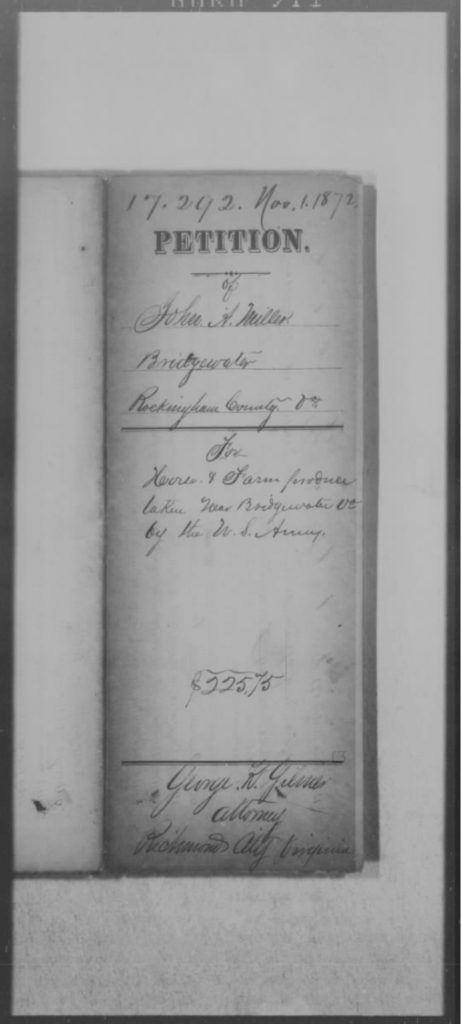 17.292. Nov. 1. 1872.
PETITION.
of
John A. Miller
Bridgewater
Rockingham County Va
For
Horse & Farm produce
taken near Bridgewater Va
by the U. S. Army.
$225,75
George K. Gilmer
attorney
Richmond City Virginia